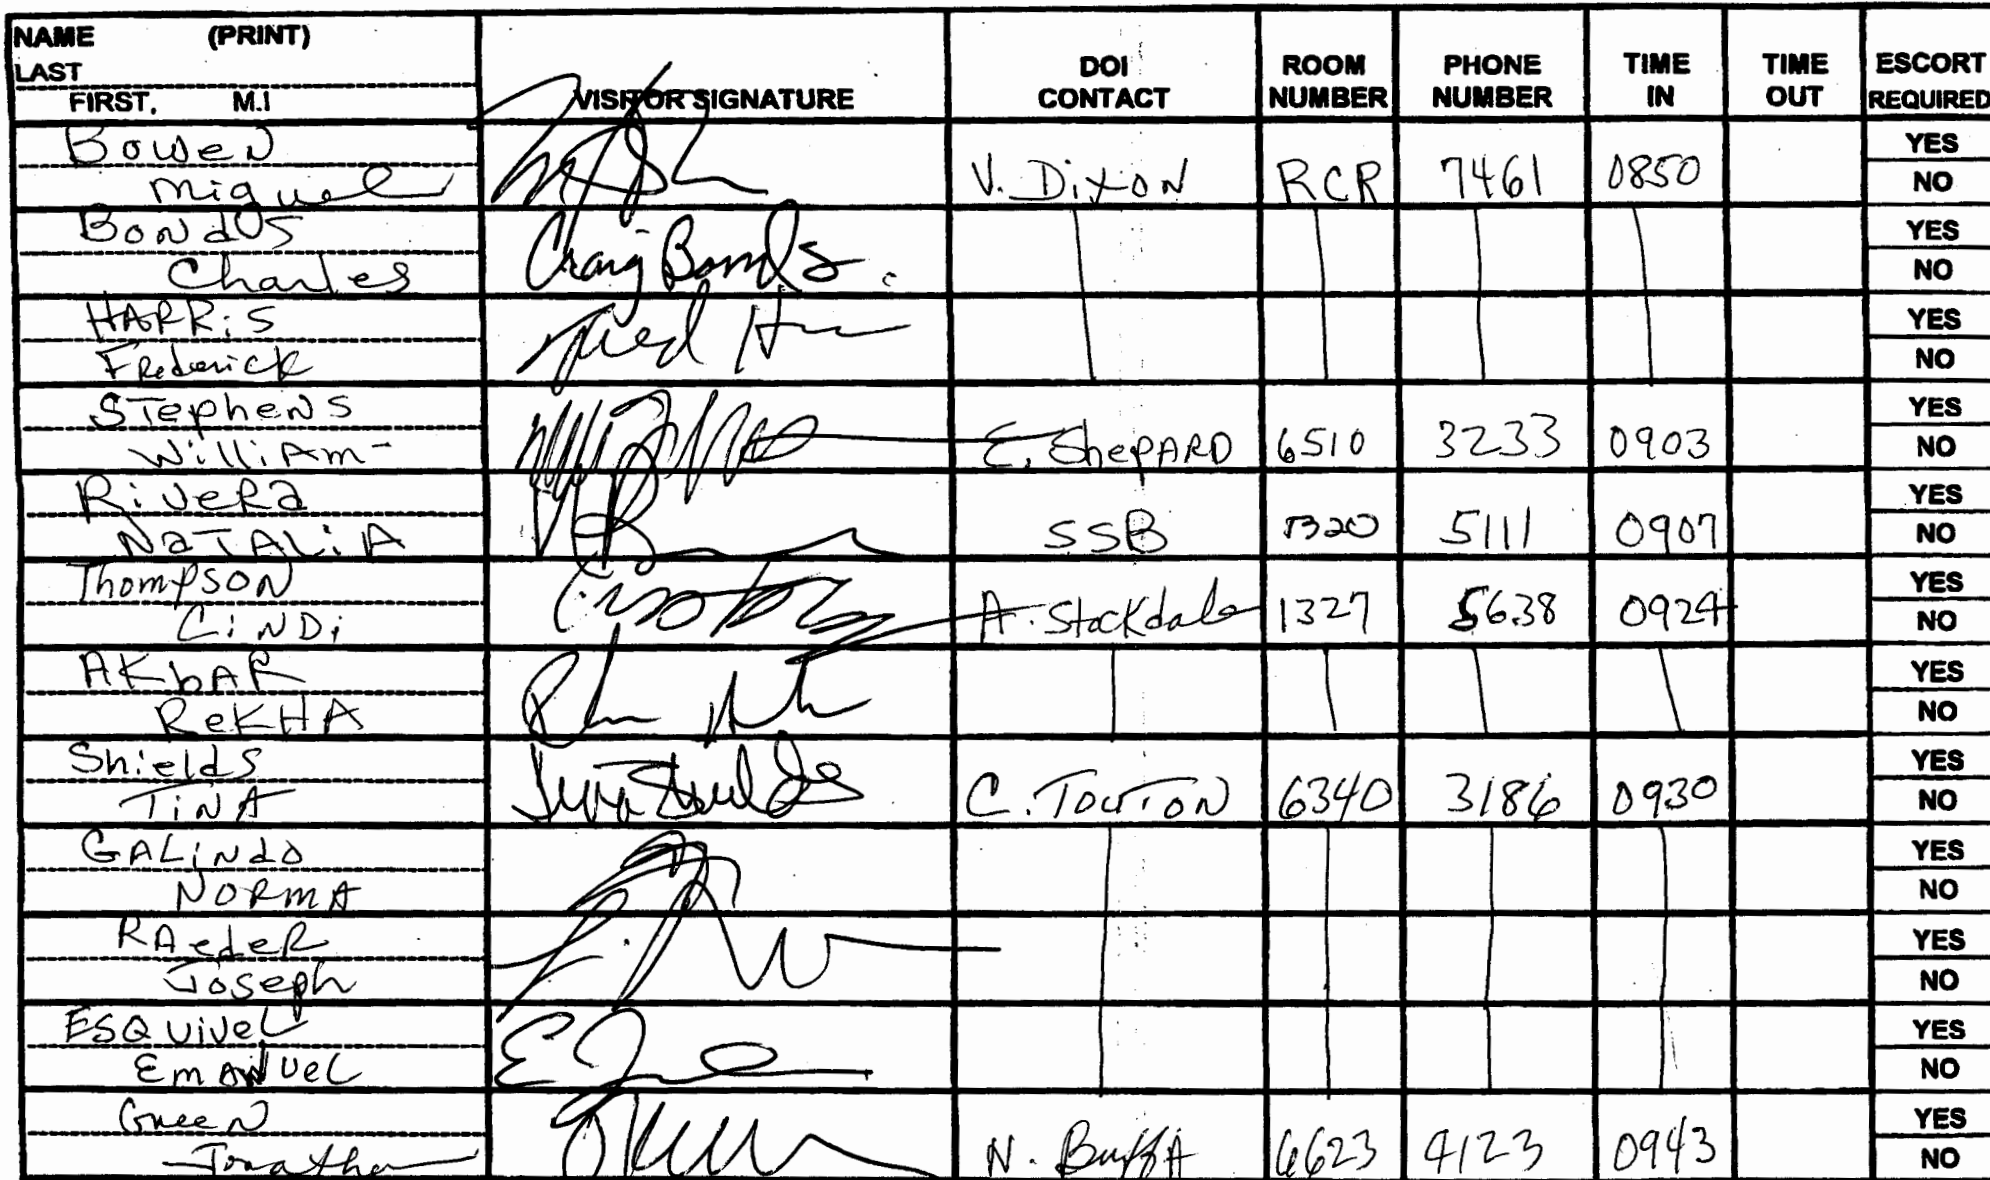 NAME (PRINT)
LAST
FIRST, M.I
VISITOR SIGNATURE
DOI CONTACT
ROOM NUMBER
PHONE NUMBER
TIME IN
TIME OUT
ESCORT REQUIRED
Bowen
Miguel
V. Dixon RCR 7461 0850
YES
NO
Bondus
Charles
Craig Bonds
YES
NO
HARRis
Frederick
YES
NO
Stephens
William
E. Shepard 6510 3233 0903
YES
NO
Rivera
NaTALiA
SSB 1320 5111 0907
YES
NO
Thompson
CiNDi
A. Stockdale 1327 5638 0924
YES
NO
AKbAR
ReKHA
YES
NO
Shields
TiNA
Tina Shields
C. Touton 6340 3186 0930
YES
NO
GALiNdo
NORMA
YES
NO
RAedeR
Joseph
YES
NO
ESQUiVeL
EmANUeL
YES
NO
Green
Jonathan
N. Buffa 6623 4123 0943
YES
NO